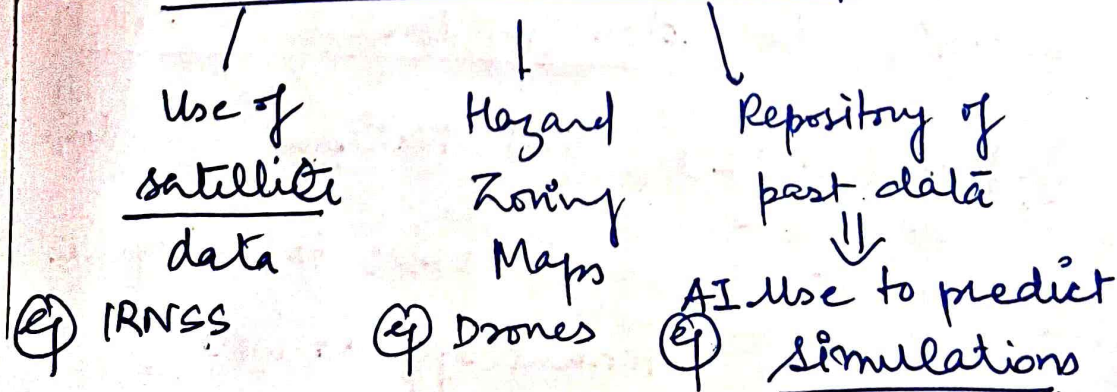 Use of
satellite
data
eg IRNSS
Hazard
Zoning
Maps
eg Drones
Repository of
past data
⇓
AI Use to predict
eg simulations